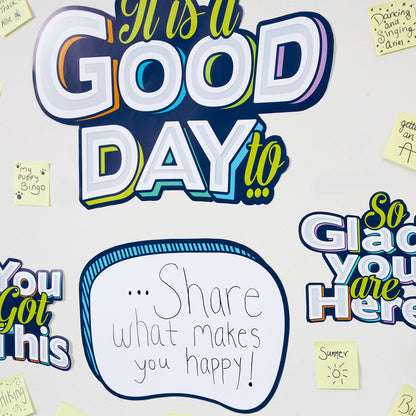 It is a
GOOD
DAY to
...
Share
what makes
you happy!
You
Got
This
So
Glad
you
are
Here
my
puppy
Bingo
Dancing
and
Singing
Ariel
getting
an
A
Summer
Hiking